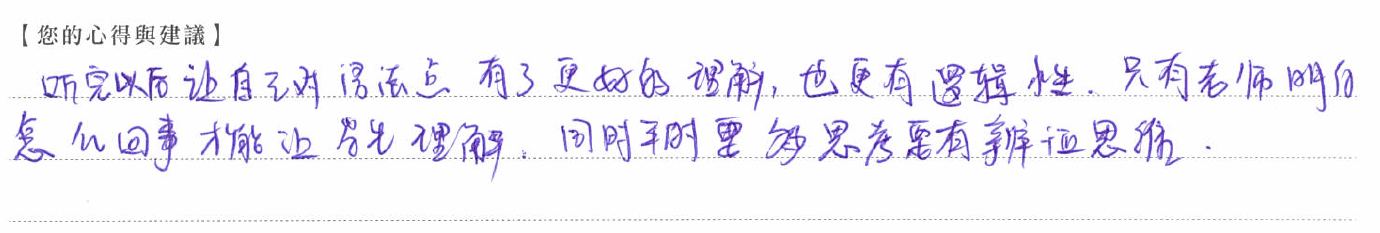 【您的心得與建議】
听完以后让自己对语法点有了更好的理解,也更有逻辑性.只有老师明白
怎么回事才能让学生理解.同时平时要多思考要有辨证思维.